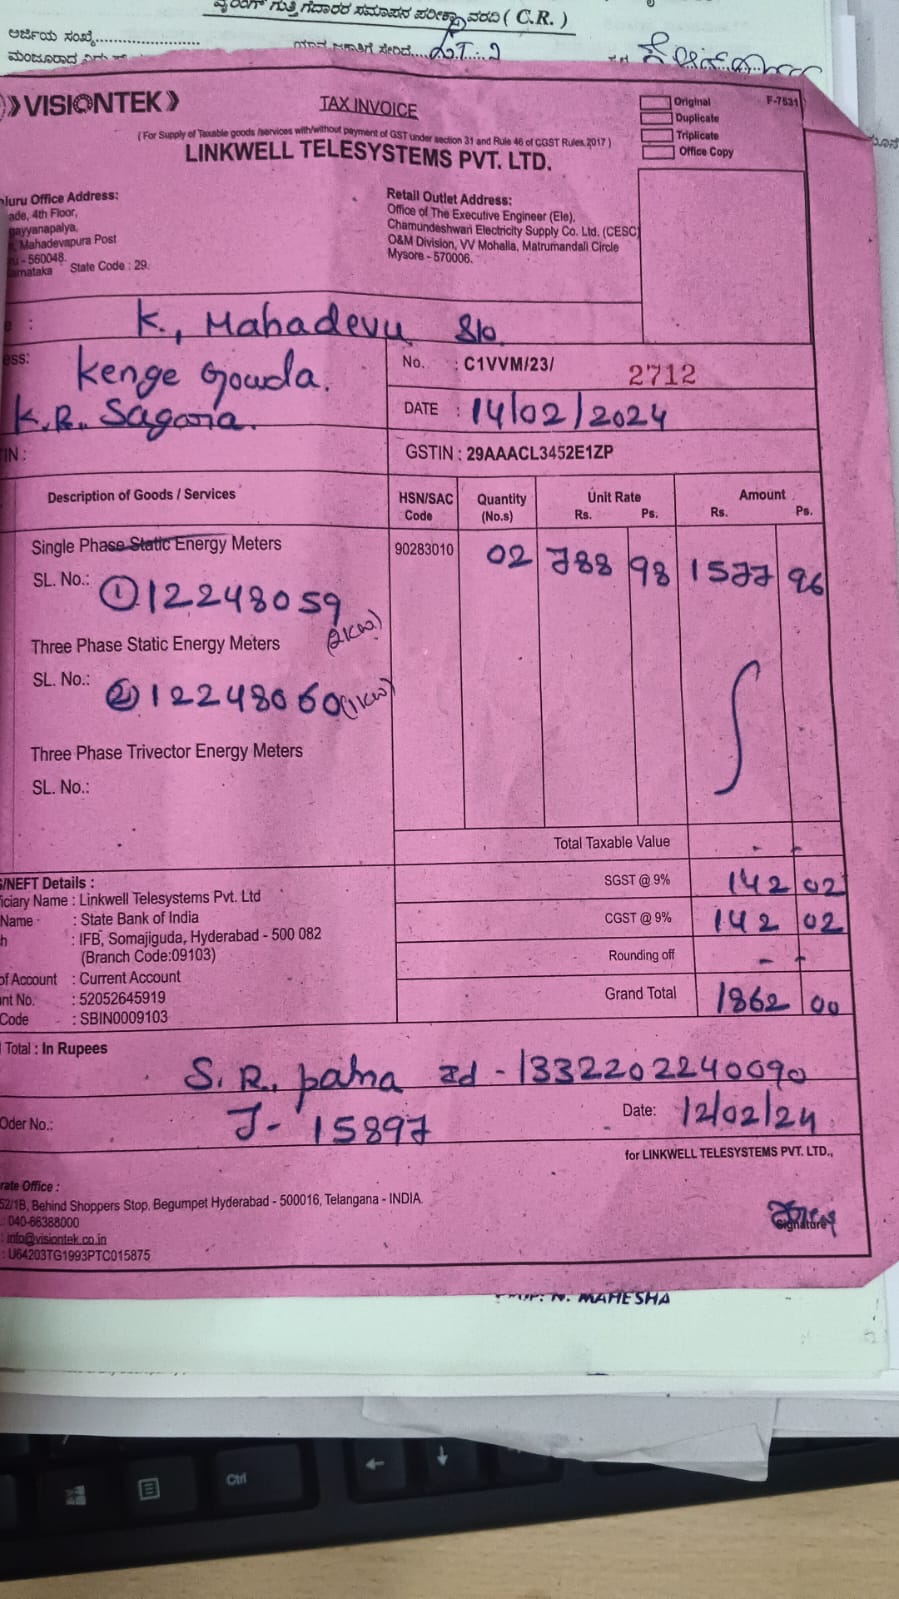 ವೈರಿಂಗ್ ಗುತ್ತಿಗೆದಾರರ ಸಮಾಪನ ಪರೀಕ್ಷಾ ವರದಿ ( C.R. )
ಅರ್ಜಿಯ ಸಂಖ್ಯೆ....................
L.T. - 2
VISIONTEK
TAX INVOICE
Original
F-7531
Duplicate
Triplicate
Office Copy
( For Supply of Taxable goods /services with/without payment of GST under section 31 and Rule 46 of CGST Rules,2017 )
LINKWELL TELESYSTEMS PVT. LTD.
luru Office Address:
ade, 4th Floor,
ayyanapalya,
Mahadevapura Post
ru - 560048.
arnataka State Code : 29.
Retail Outlet Address:
Office of The Executive Engineer (Ele),
Chamundeshwari Electricity Supply Co. Ltd. (CESC)
O&M Division, VV Mohalla, Matrumandali Circle
Mysore - 570006.
e : K., Mahadevu S/o
ess: Kenge Gowda.
K.R. Sagara.
No. : C1VVM/23/ 2712
DATE : 14/02/2024
TIN :
GSTIN : 29AAACL3452E1ZP
Description of Goods / Services
HSN/SAC Code
Quantity (No.s)
Unit Rate
Rs. Ps.
Amount
Rs. Ps.
Single Phase Static Energy Meters 90283010 02 788 98 1577 96
SL. No.: ① 12248059
(2KW)
Three Phase Static Energy Meters
SL. No.: ② 12248060 (1KW)
Three Phase Trivector Energy Meters
SL. No.:
Total Taxable Value - -
SGST @ 9% 142 02
CGST @ 9% 142 02
Rounding off - -
Grand Total 1862 00
/NEFT Details :
iciary Name : Linkwell Telesystems Pvt. Ltd
Name : State Bank of India
h : IFB, Somajiguda, Hyderabad - 500 082
(Branch Code:09103)
of Account : Current Account
nt No. : 52052645919
Code : SBIN0009103
Total : In Rupees
S. R. patna rd - 1332202240090
Oder No.: J - 15897
Date: 12/02/24
for LINKWELL TELESYSTEMS PVT. LTD.,
rate Office :
52/1B, Behind Shoppers Stop, Begumpet Hyderabad - 500016, Telangana - INDIA.
: 040-66388000
: info@visiontek.co.in
: U64203TG1993PTC015875
Signature
N. MAHESHA
Ctrl